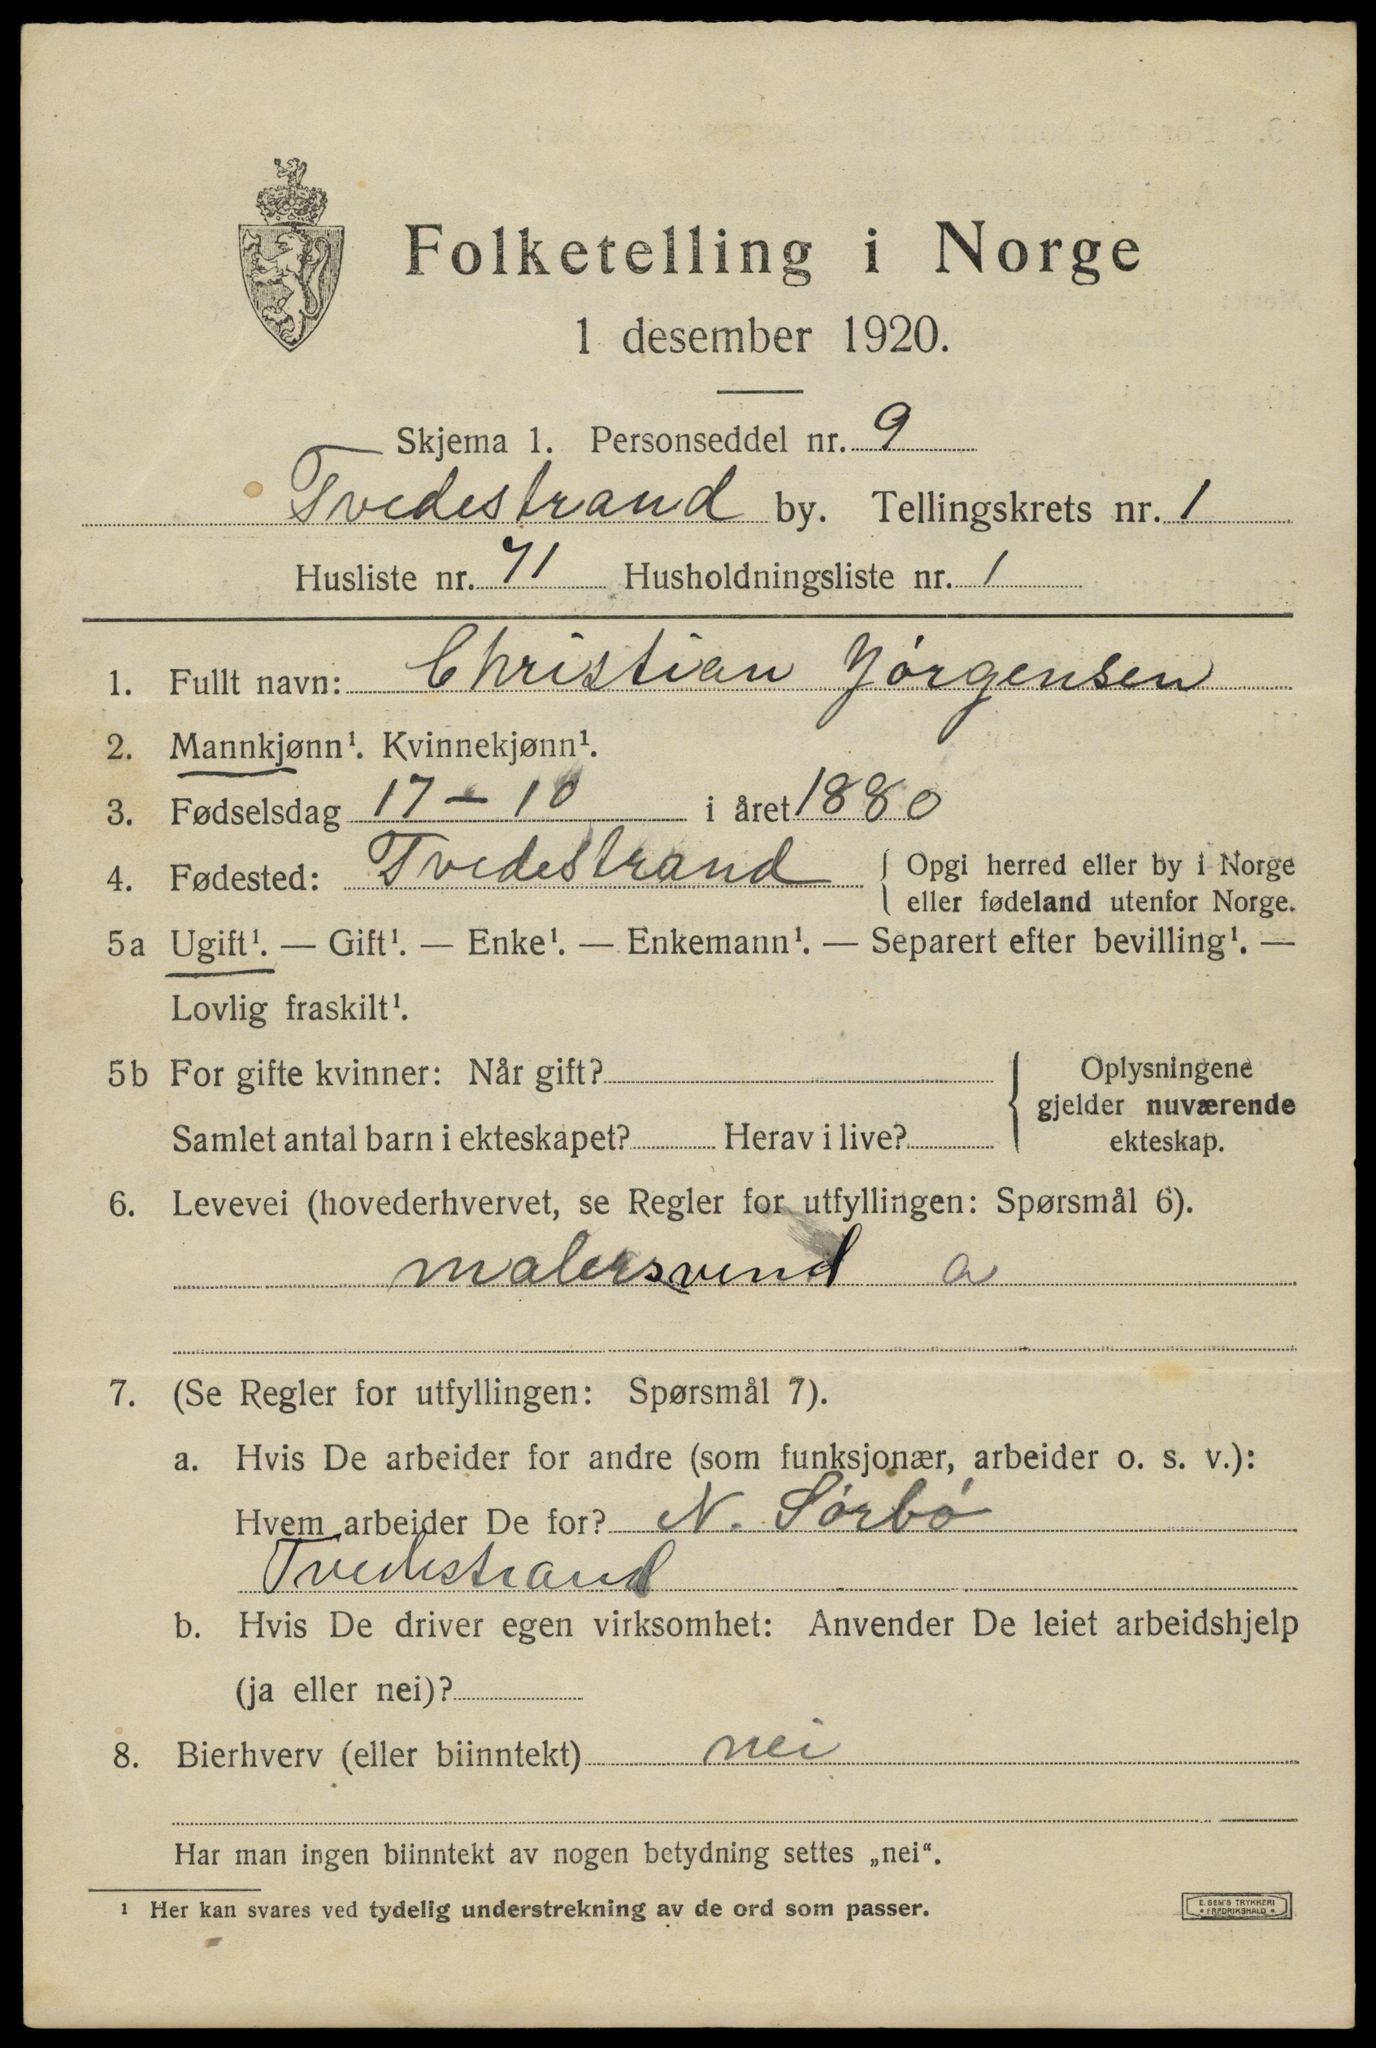 Folketelling i Norge
1 desember 1920.
Skjema 1. Personseddel nr. 9
Tvedestrand by. Tellingskrets nr. 1
Husliste nr. 71 Husholdningsliste nr. 1
1. Fullt navn: Christian Jörgensen
2. Mannkjønn¹. Kvinnekjønn¹.
3. Fødselsdag 17 – 10 i året 1880
4. Fødested: Tvedestrand { Opgi herred eller by i Norge
eller fødeland utenfor Norge.
5a Ugift¹. — Gift¹. — Enke¹. — Enkemann¹. — Separert efter bevilling¹. —
Lovlig fraskilt¹.
5b For gifte kvinner: Når gift? { Oplysningene
gjelder nuværende
Samlet antal barn i ekteskapet? Herav i live? ekteskap.
6. Levevei (hovederhvervet, se Regler for utfyllingen: Spørsmål 6).
malersvend a
7. (Se Regler for utfyllingen: Spørsmål 7).
a. Hvis De arbeider for andre (som funksjonær, arbeider o. s. v.):
Hvem arbeider De for? N. Sórbó
Tvedestrand
b. Hvis De driver egen virksomhet: Anvender De leiet arbeidshjelp
(ja eller nei)?
8. Bierhverv (eller biinntekt) nei
Har man ingen biinntekt av nogen betydning settes „nei“.
¹ Her kan svares ved tydelig understrekning av de ord som passer.
E. SEM'S TRYKKERI
• FREDRIKSHALD •